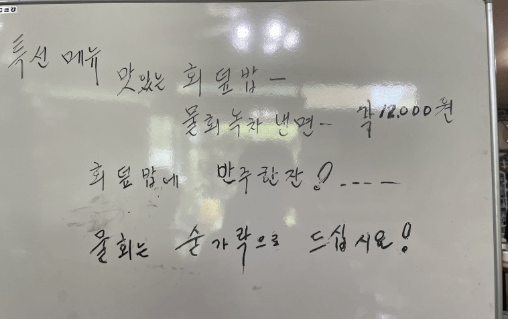 특선 메뉴
맛있는 회덮밥 –
물회 녹차 냉면 – 각 12,000원
회덮밥에 반주한잔? ----
물회는 숟가락으로 드십시요!